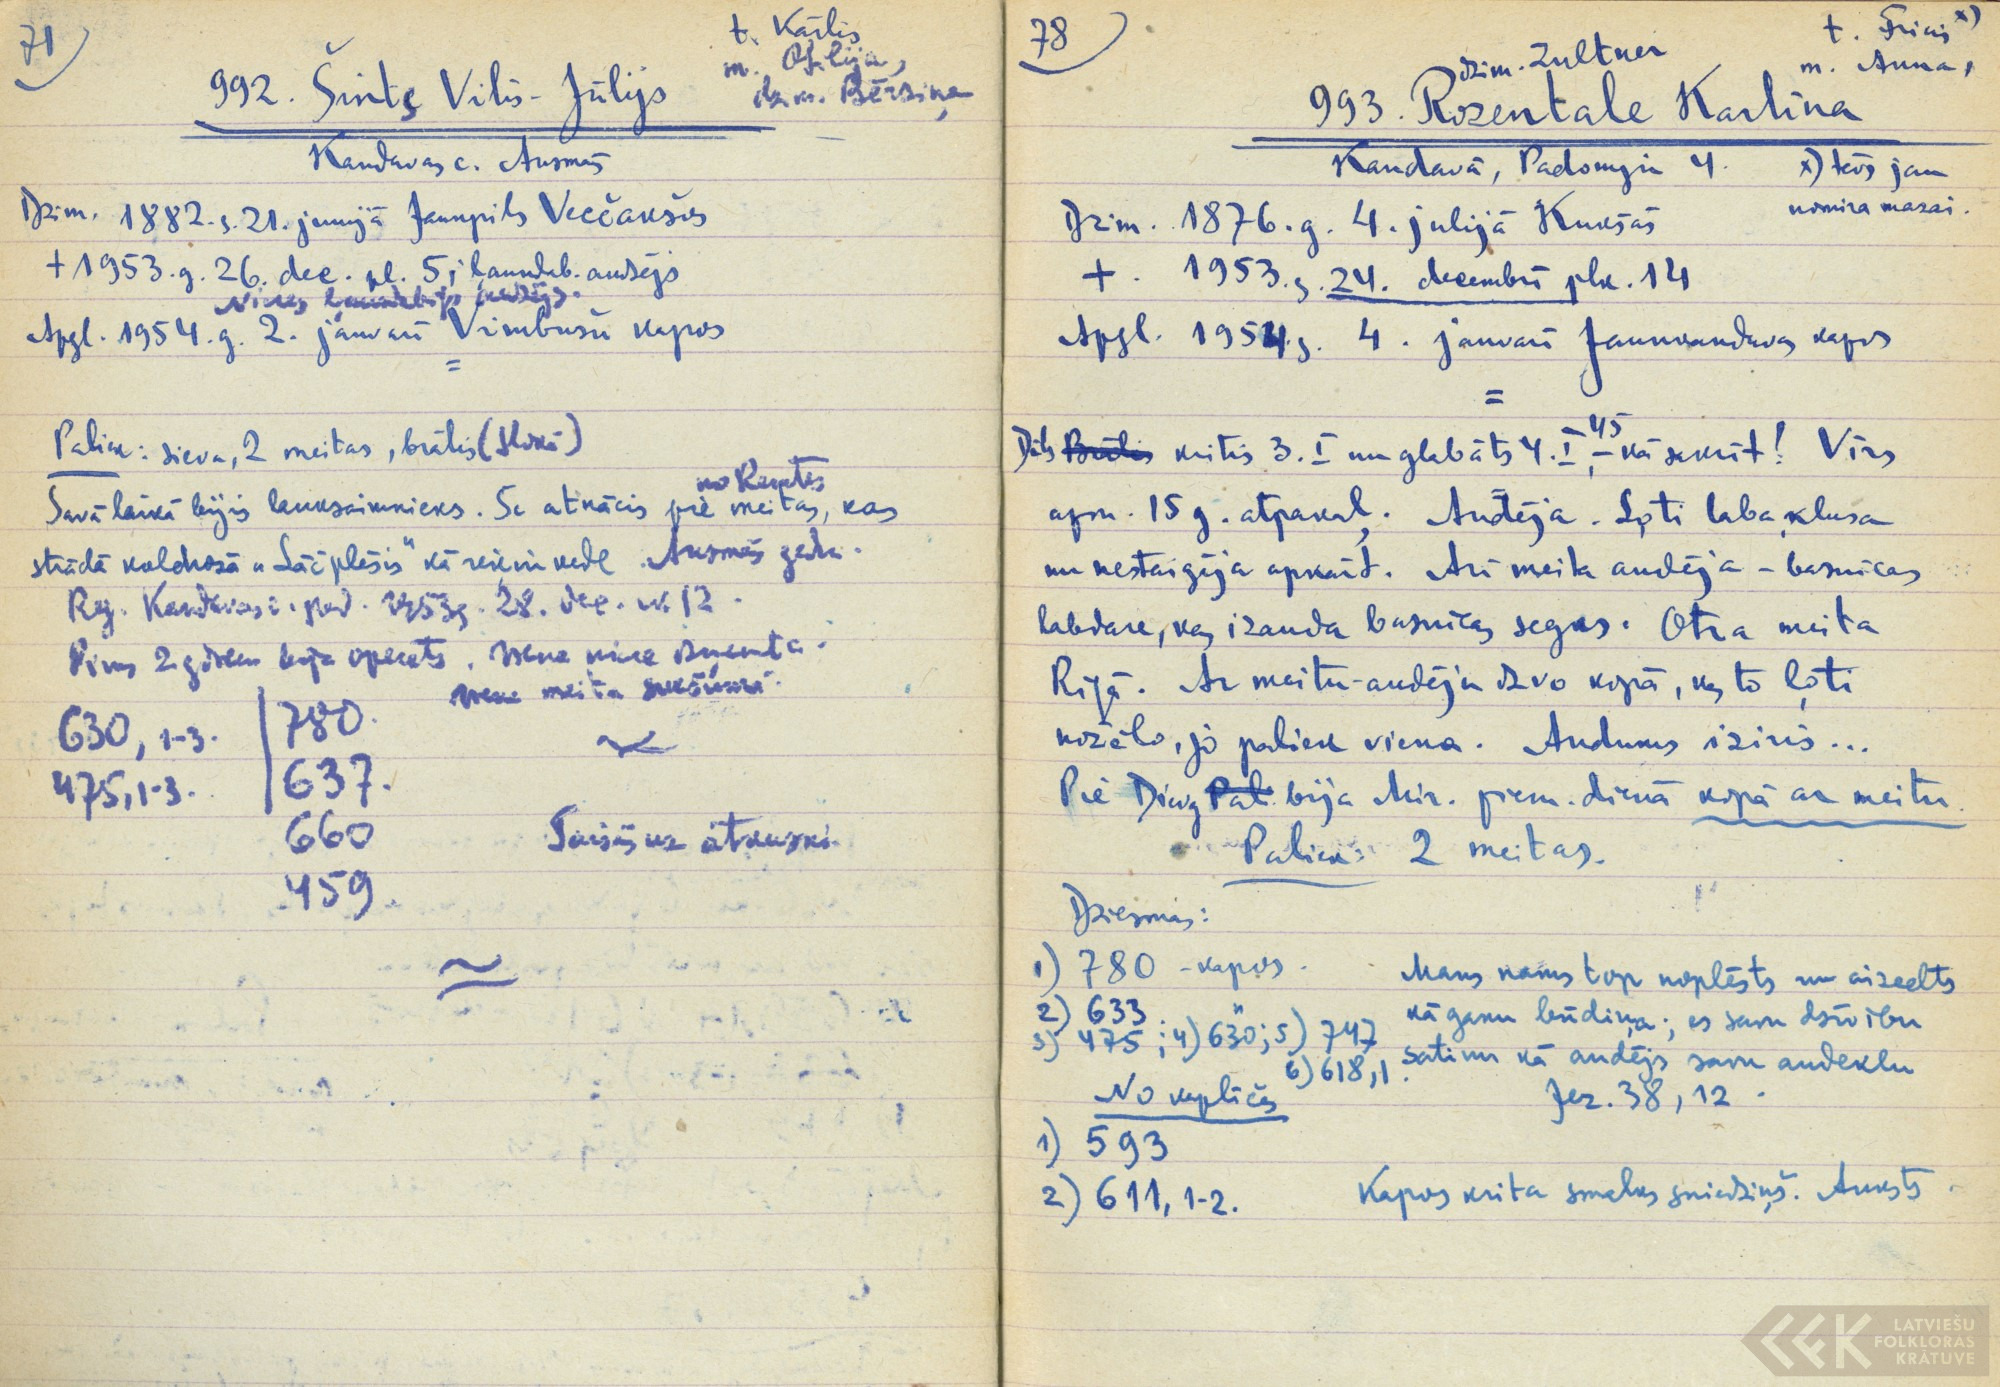 71)
t. Kārlis
m. Otilija,
dzim. Bērziņa
992. Šinte Vilis-Jūlijs
Kandavas c. Ausmās
Dzim. 1882.g. 21. jūnijā Jaunpils Vecčakšos
+ 1953.g. 26. dec. pl. 5; ļaundab. audzējs
Nieres ļaundabīgs audzējs.
Apgl. 1954.g. 2. janvarī Vimbušu kapos
=
Paliek: sieva, 2 meitas, brālis (Slokā)
no Remtes
Savā laikā bijis lauksaimnieks. Še atnācis pie meitas, kas
strādā kolchozā „Lāčplēsis" kā rēķinvede. Ausmās
Reģ. Kandavas pad. 1953g. 28. dec. nr. 12.
Pirms 2 gadiem bija operēts, viena niere izņemta.
viena meita
630, 1-3. | 780.
475, 1-3. | 637.
660
459
Taisījās uz atkusni.
78)
t. Fricis x)
m. Anna,
dzim. Zultner
993. Rozentale Karlīna
Kandavā, Padomju 4.
x) tēvs jau
nomira mazai.
Dzim. 1876.g. 4. julijā Kukšās
+. 1953.g. 24. decembrī plk. 14
Apgl. 1954.g. 4. janvarī Jaunkandavas kapos
=
Dēls Brālis kritis 3.I un glabāts 4.I 45, – kā sakrīt! Vīrs
apm. 15 g. atpakaļ. Audēja. Ļoti laba, klusa
un nestaigāja apkārt. Arī meita audēja – basnīcas
labdare, kas izauda basnīcas segas. Otra meita
Rīgā. Ar meitu-audēju dzīvo kopā, kas to ļoti
nožēlo, jo paliek viena. Audums iziris...
Pie Dievg Pal. bija Mir. piem. dienā kopā ar meitu.
Paliek: 2 meitas.
Dziesmas:
1) 780 - kapos.
2) 633 "
3) 475; 4) 630; 5) 747
6) 618,1.
Mans nams top noplēsts un aizcelts
kā ganu būdiņa; es savu dzīvību
satinu kā audējs savu audeklu
Jez. 38, 12.
No kapličas
1) 593
2) 611, 1-2.
Kapos krita smalks sniedziņš. Auksts.
LATVIEŠU
FOLKLORAS
KRĀTUVE